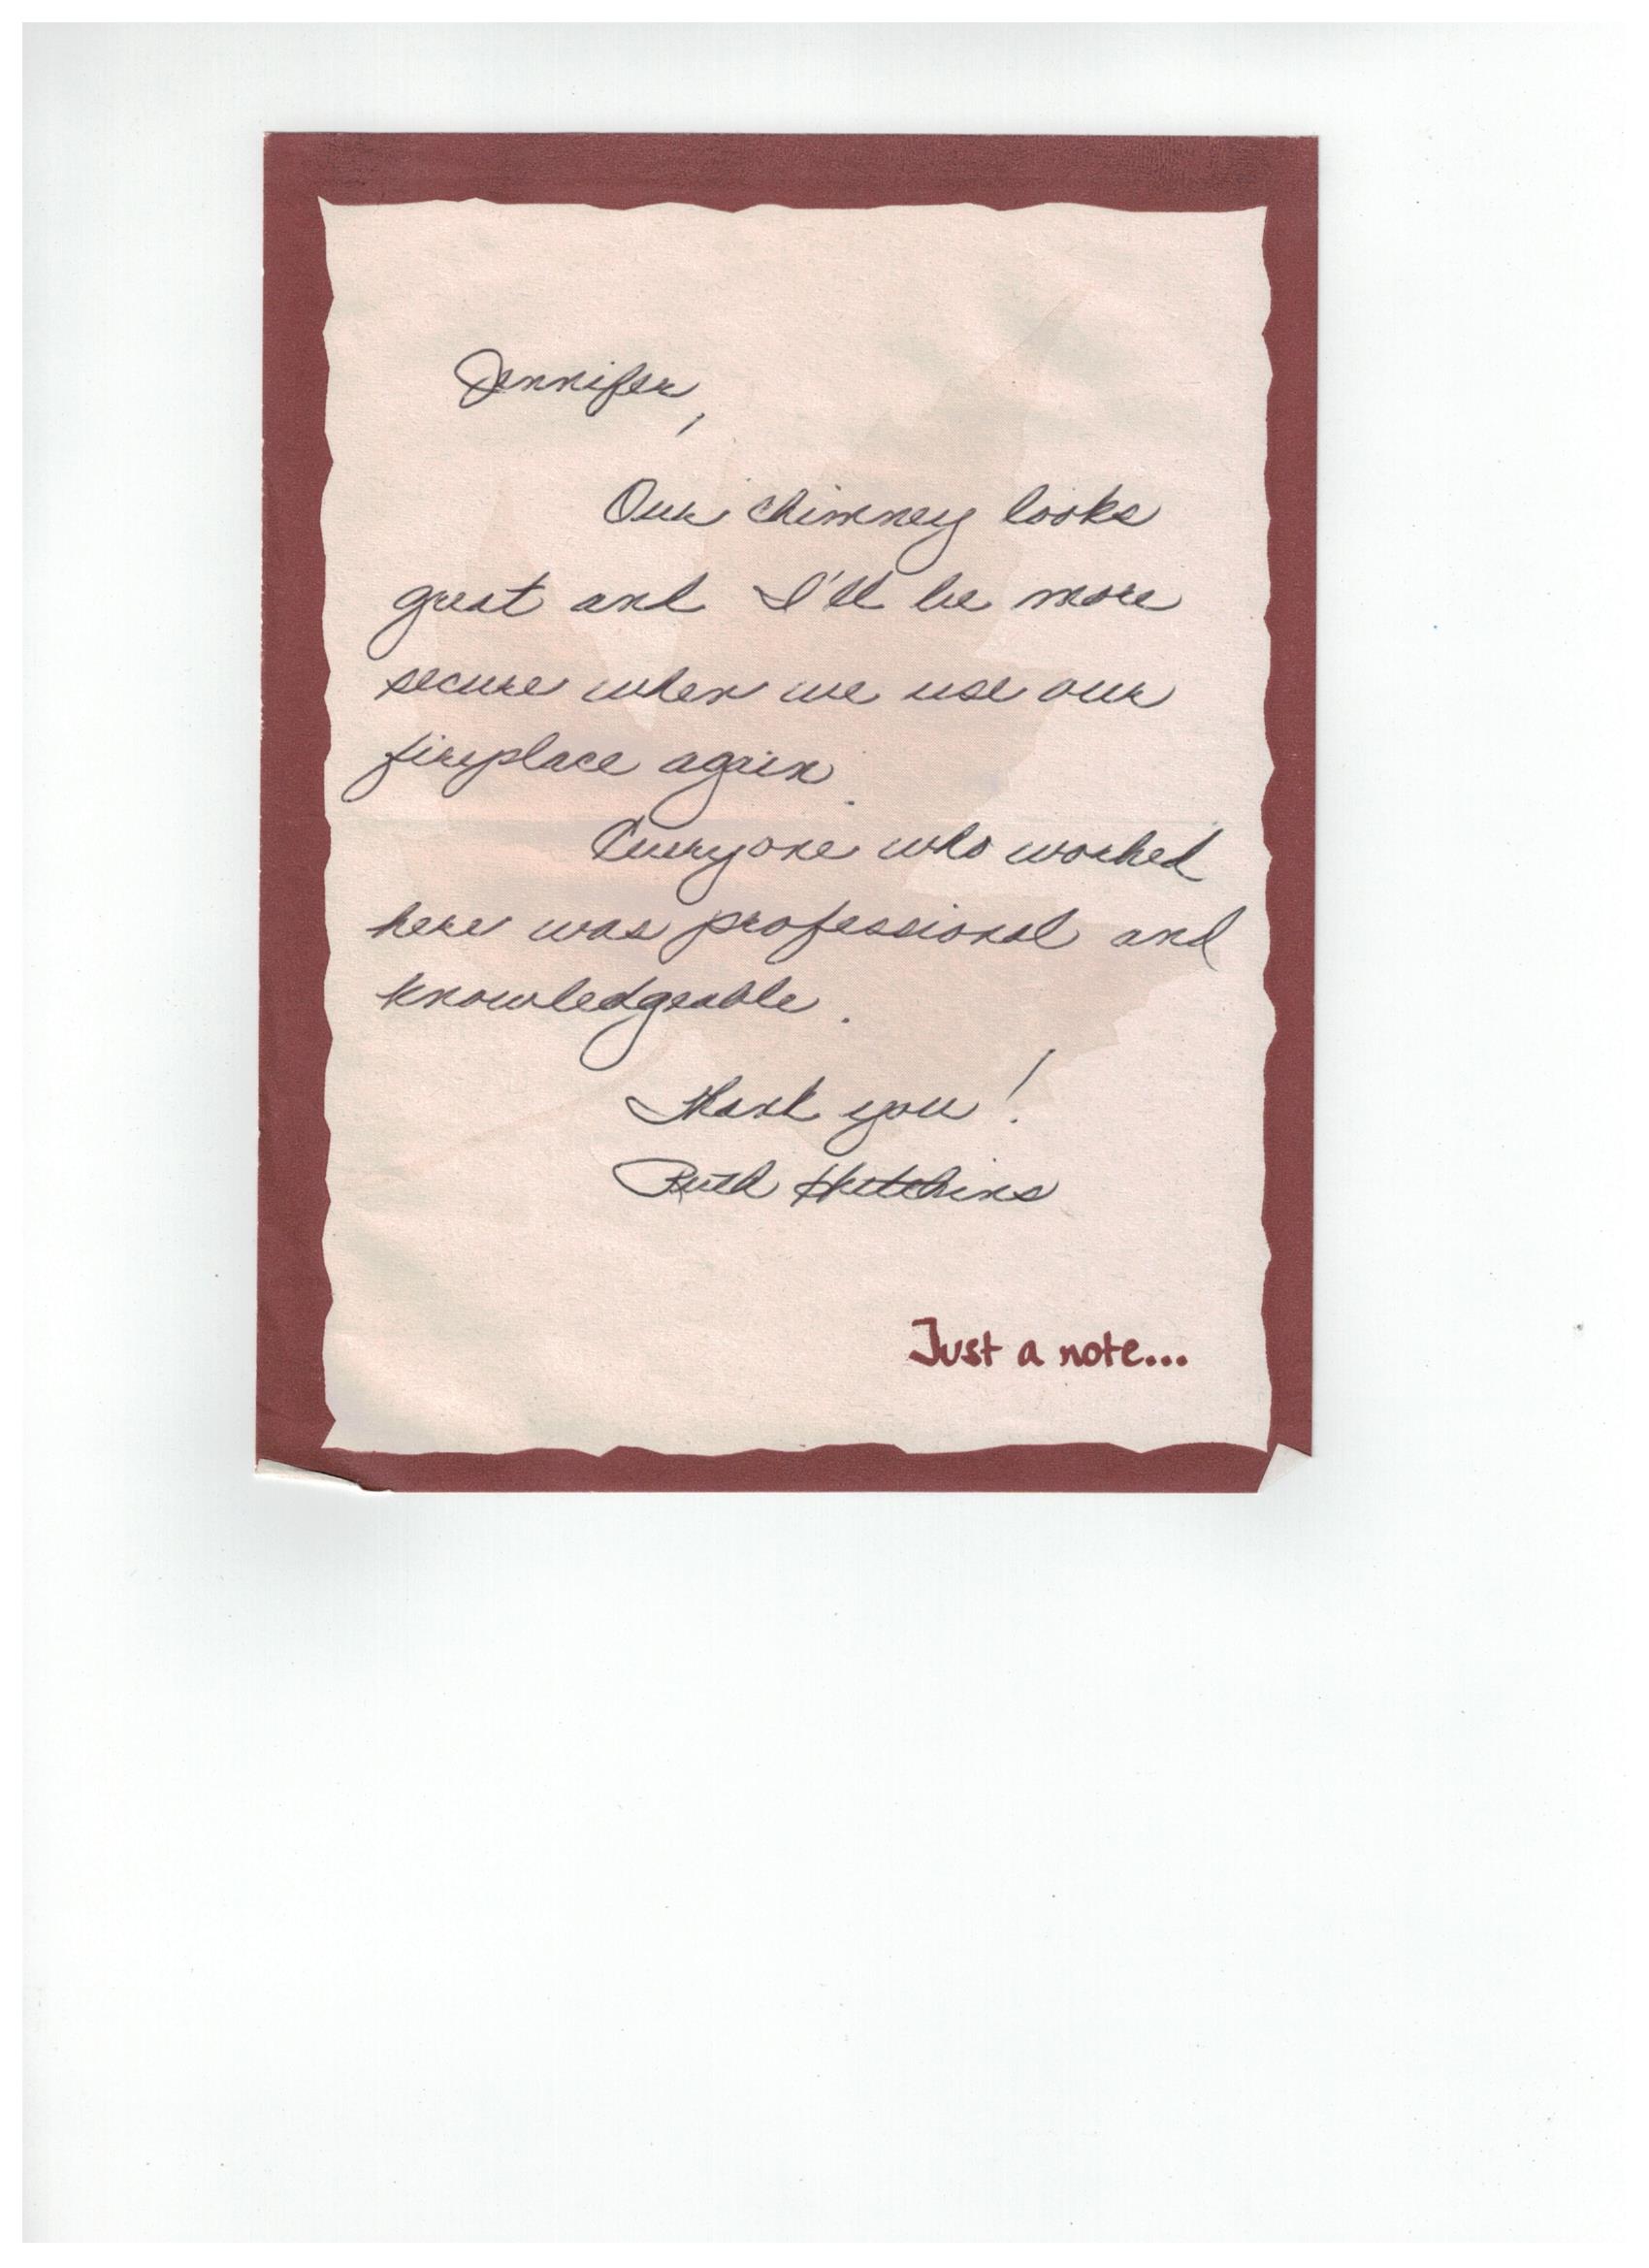 Jennifer,
Our chimney looks
great and I'll be more
secure when we use our
fireplace again.
Everyone who worked
here was professional and
knowledgeable.
Thank you!
Ruth Hutchins
Just a note...